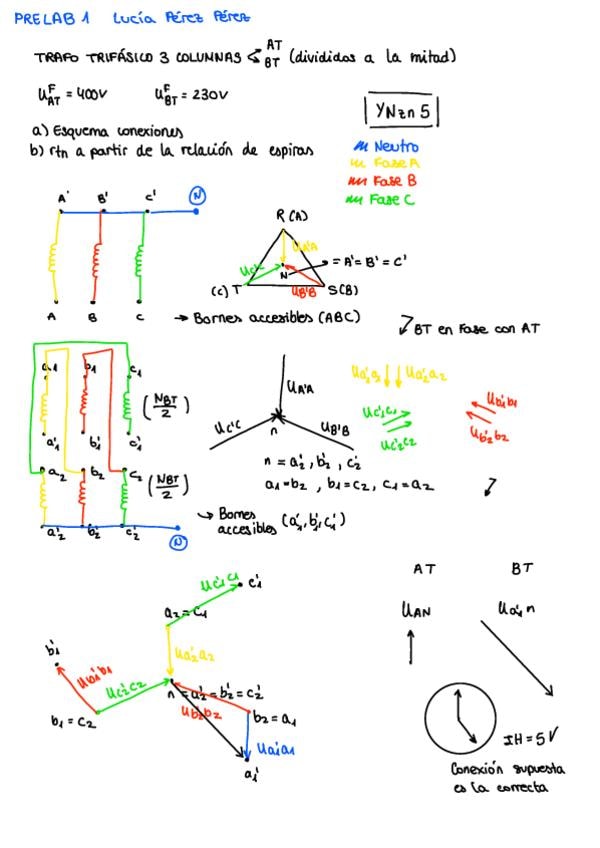 PRELAB 1 Lucía Pérez Pérez
TRAFO TRIFÁSICO 3 COLUMNAS < AT BT (divididos a la mitad)
U^F_AT = 400V U^F_BT = 230V
YNzn 5
a) Esquema conexiones
b) rtn a partir de la relación de espiras
Neutro
Fase A
Fase B
Fase C
A' B' C' N
A B C
R (A)
UA'A
UC'C
N = A' = B' = C'
(C) T UB'B S(B)
→ Bornes accesibles (ABC)
BT en fase con AT
a1 b1 c1
(NBT/2)
a'1 b'1 c'1
a2 b2 c2
(NBT/2)
a'2 b'2 c'2
N
UA'A
UC'C
UB'B
n
n = a'2, b'2, c'2
a1 = b2, b1 = c2, c1 = a2
Ua'1a1 Ua'2a2
Uc'1c1
Uc'2c2
Ub'1b1
Ub'2b2
↳ Bornes accesibles (a'1, b'1, c'1)
Uc'1c1 c'1
a2 = c1
Ua'2a2
b'1
Ub'1b1
Uc'2c2
n = a'2 = b'2 = c'2
Ub'2b2
b1 = c2
b2 = a1
Ua'1a1
a1'
AT BT
UAN Ua'1n
IH = 5 √
Conexión supuesta
es la correcta